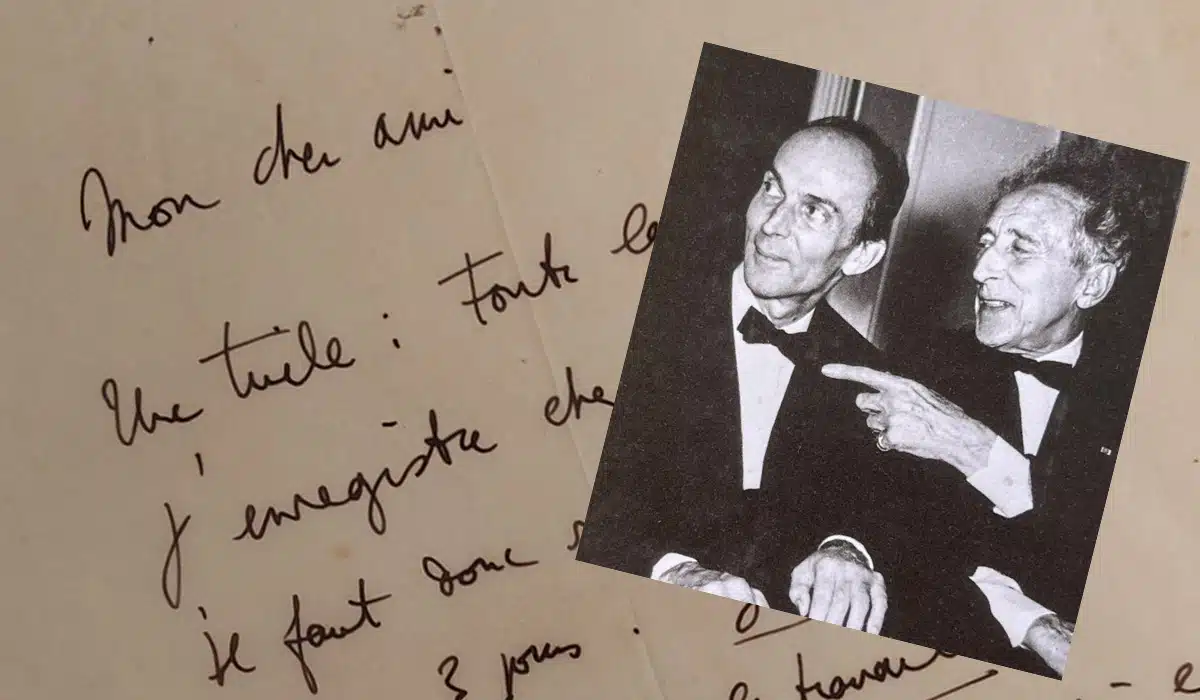 Mon cher ami
Une tuile : Toute le
j'enregistre che
Il faut donc
3 jours .
travail